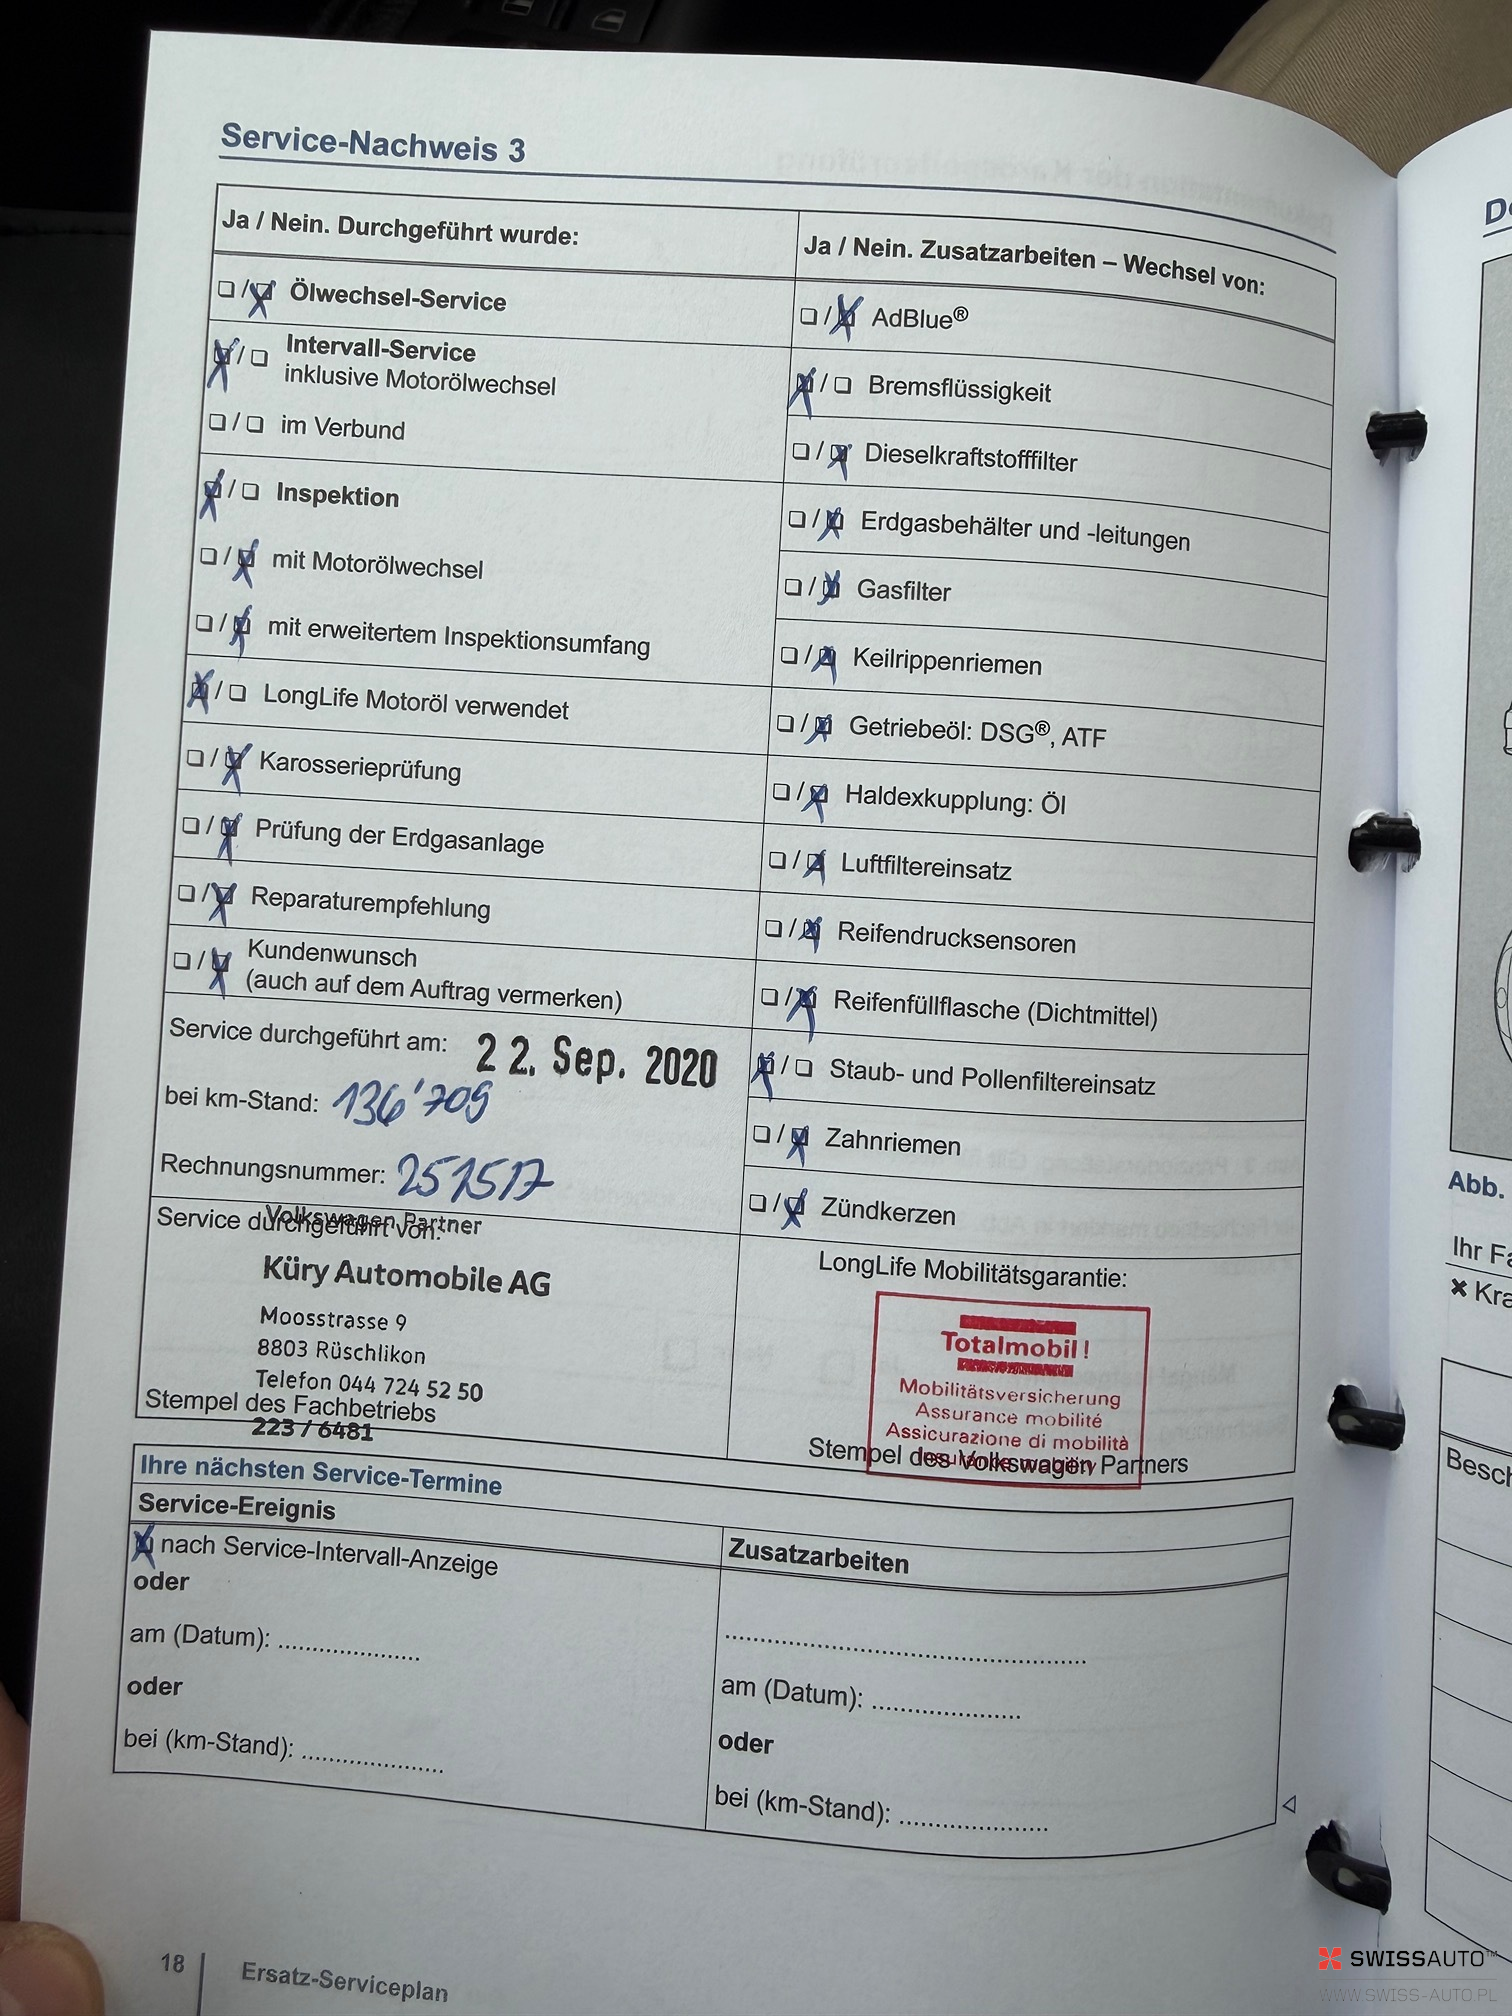 Service-Nachweis 3
Ja / Nein. Durchgeführt wurde:
Ölwechsel-Service
Intervall-Service
inklusive Motorölwechsel
im Verbund
Inspektion
mit Motorölwechsel
mit erweitertem Inspektionsumfang
LongLife Motoröl verwendet
Karosserieprüfung
Prüfung der Erdgasanlage
Reparaturempfehlung
Kundenwunsch
(auch auf dem Auftrag vermerken)
Service durchgeführt am: 22. Sep. 2020
bei km-Stand: 136'709
Rechnungsnummer: 251517
Service durchgeführt von:
Volkswagen Partner
Küry Automobile AG
Moosstrasse 9
8803 Rüschlikon
Telefon 044 724 52 50
Stempel des Fachbetriebs
223 / 6481
Ja / Nein. Zusatzarbeiten – Wechsel von:
AdBlue®
Bremsflüssigkeit
Dieselkraftstofffilter
Erdgasbehälter und -leitungen
Gasfilter
Keilrippenriemen
Getriebeöl: DSG®, ATF
Haldexkupplung: Öl
Luftfiltereinsatz
Reifendrucksensoren
Reifenfüllflasche (Dichtmittel)
Staub- und Pollenfiltereinsatz
Zahnriemen
Zündkerzen
LongLife Mobilitätsgarantie:
Totalmobil!
Mobilitätsversicherung
Assurance mobilité
Assicurazione di mobilità
Insurance mobility
Stempel des Volkswagen Partners
Ihre nächsten Service-Termine
Service-Ereignis
nach Service-Intervall-Anzeige
oder
am (Datum): .....................
oder
bei (km-Stand): .....................
Zusatzarbeiten
.....................................................
am (Datum): ......................
oder
bei (km-Stand): ......................
18
Ersatz-Serviceplan
Abb.
Ihr Fa
Kra
Besch
SWISSAUTO™
WWW.SWISS-AUTO.PL